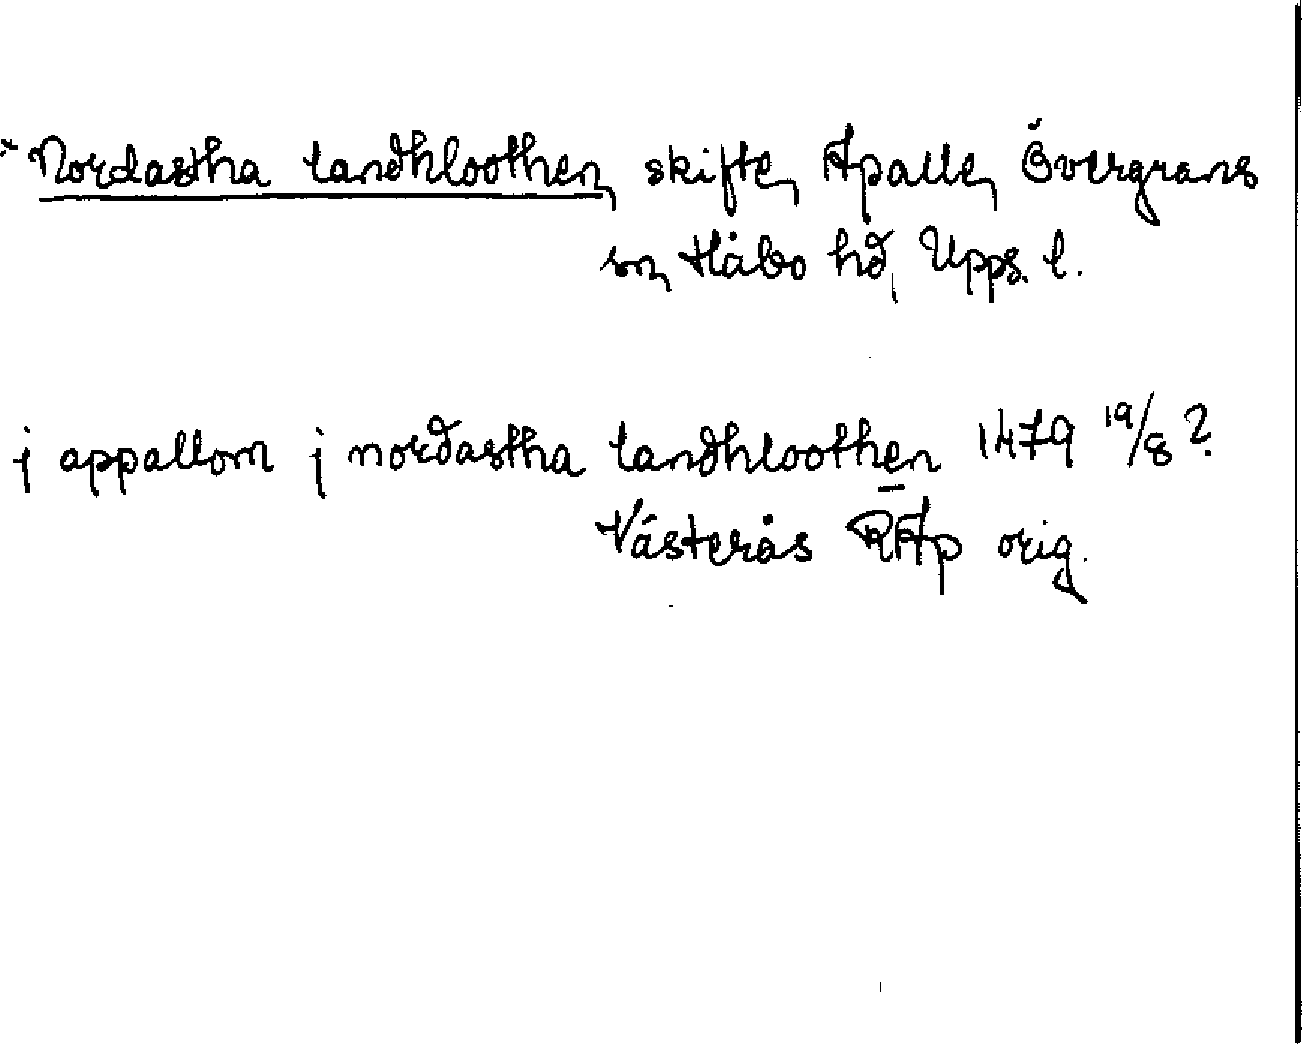 *Nordastha landhloothen, skifte, Apalle, Övergrans
sn, Håbo hd, Upps. l.
j appallom j nordastha landhloothen 1479 19/8?
Västerås RAp orig.